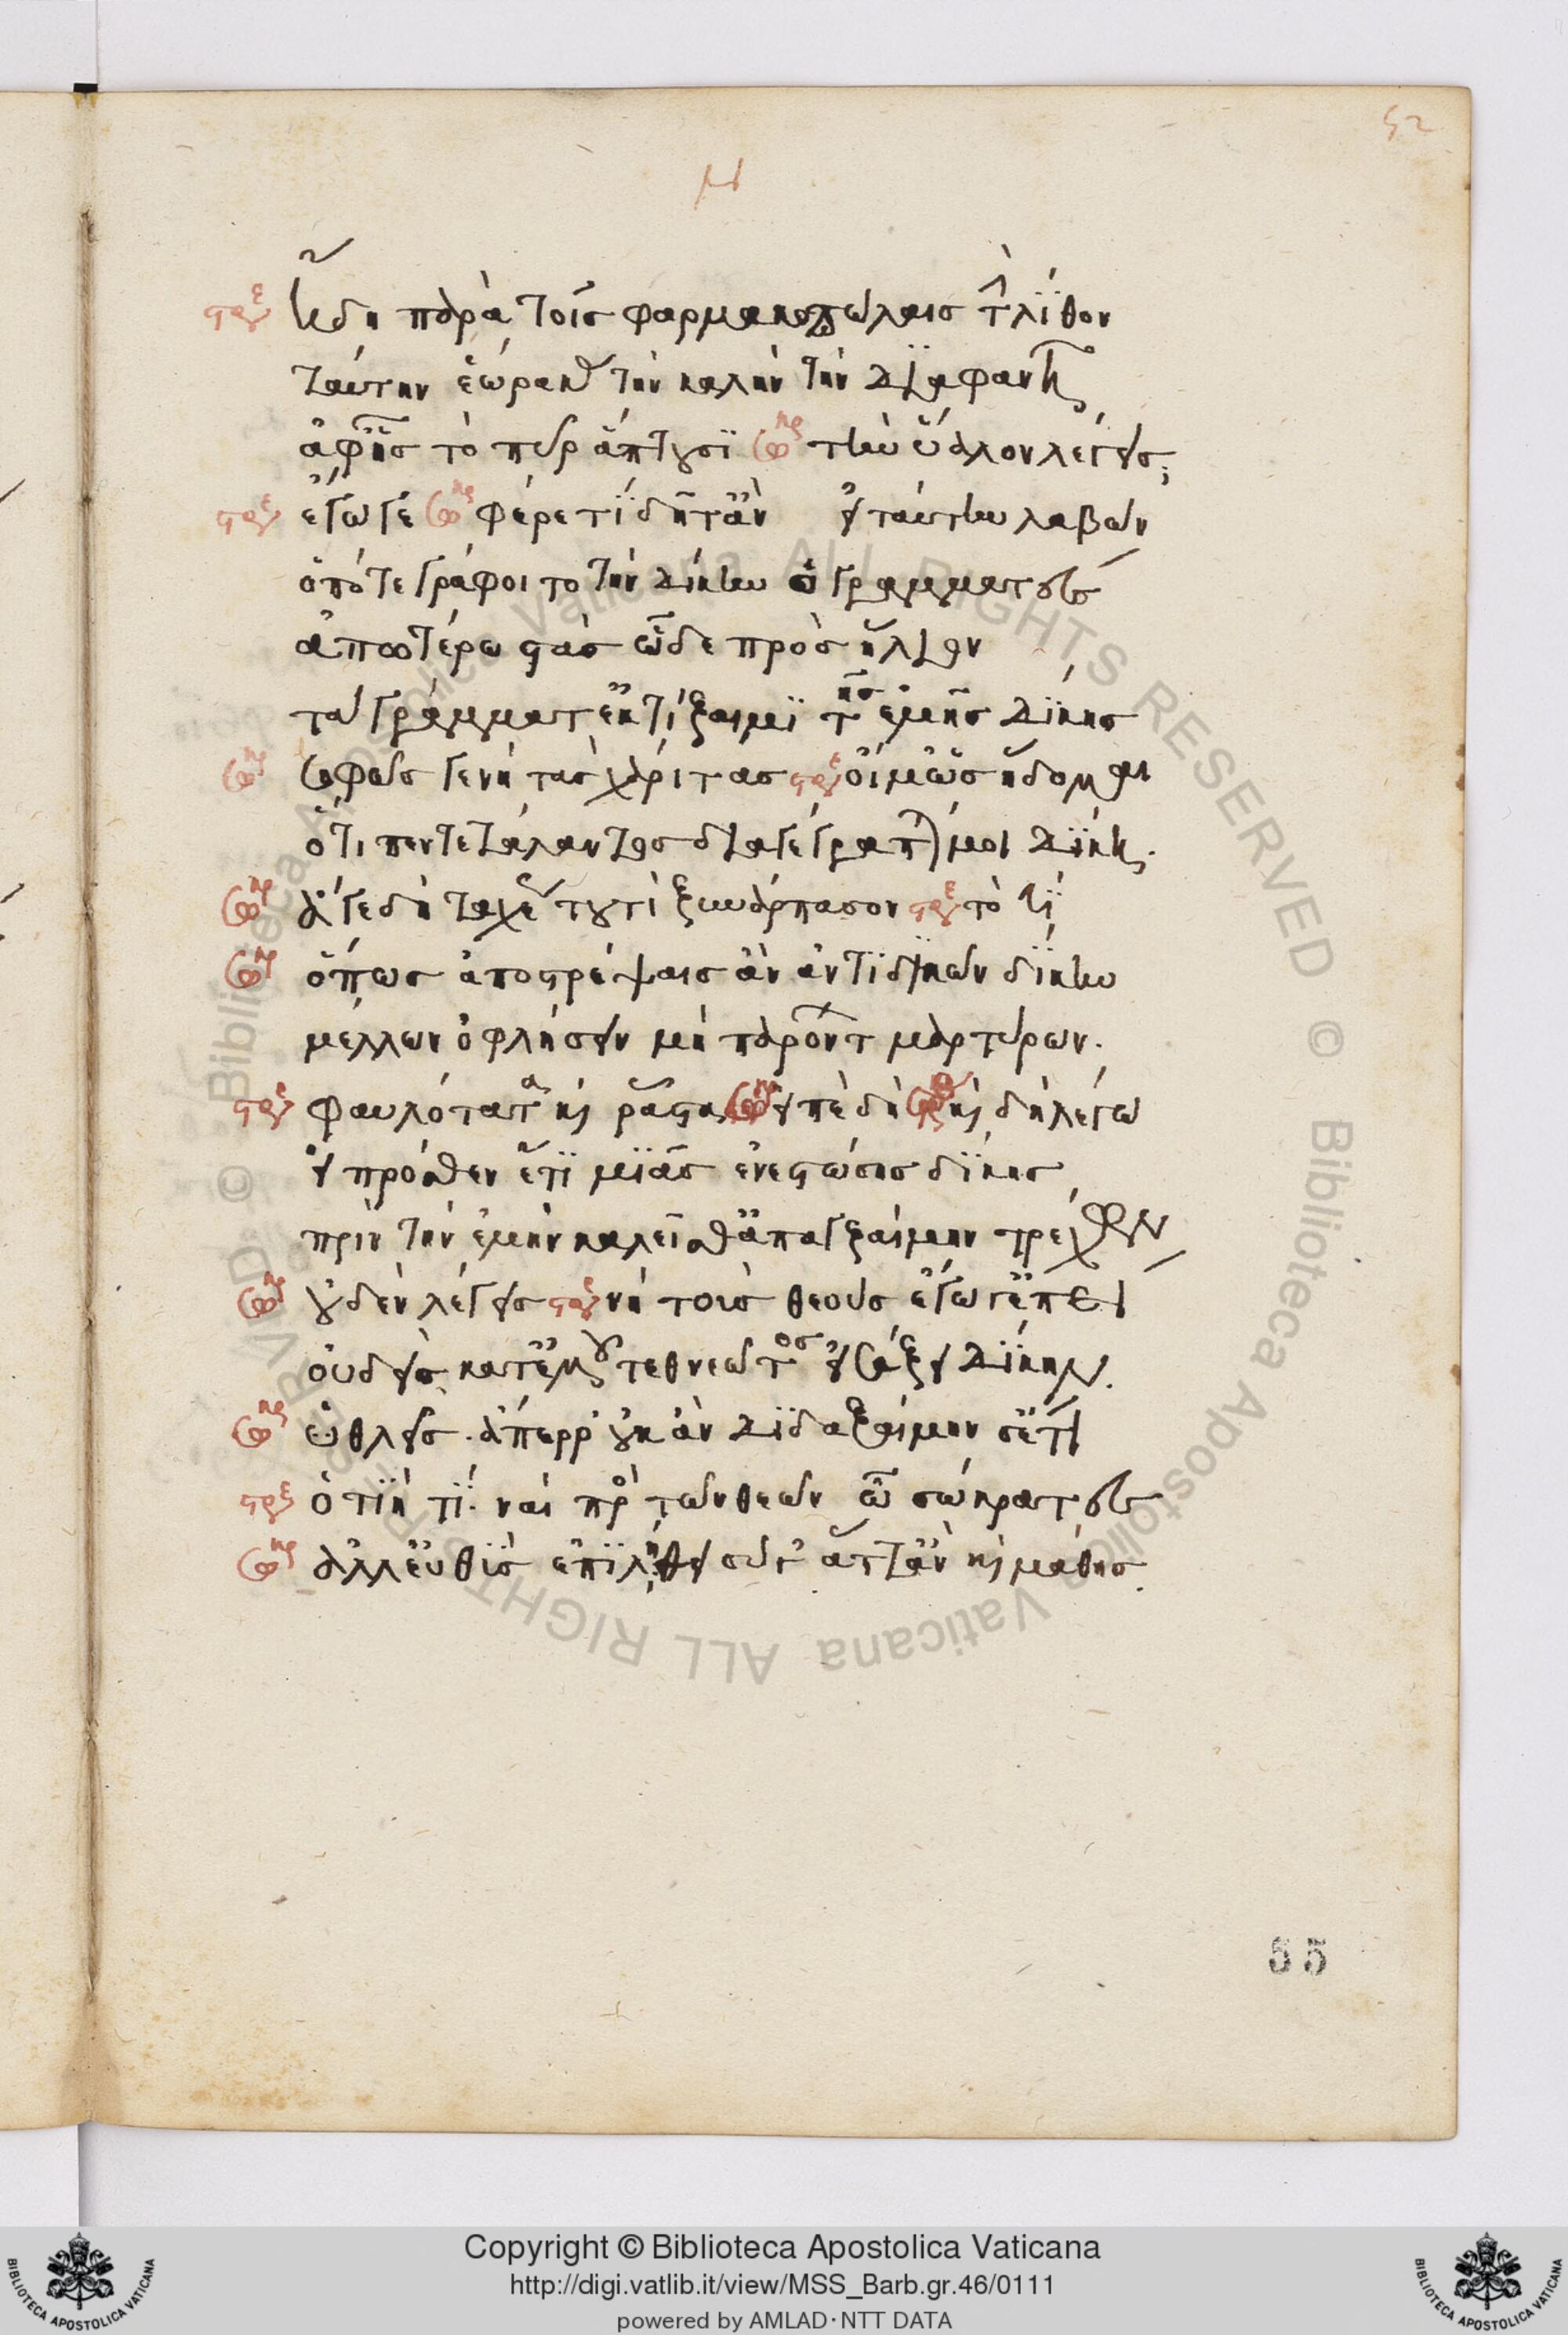 52
μ
στρε ἤδη παρὰ τοῖς φαρμακοπώλαις τὴν λίθον
ταύτην ἑώρακας τὴν καλὴν τὴν διαφανῆ
ἀφ' ἧς τὸ πῦρ ἅπτουσι σωκρ τὴν ὕαλον λέγεις;
στρε ἔγωγε σωκρ φέρε τί δῆτ' ἂν εἰ ταύτην λαβὼν
ὁπότε γράφοιτο τὴν δίκην ὁ γραμματεὺς
ἀπωτέρω στὰς ὧδε πρὸς ἥλιον
τὰ γράμματ' ἐκτήξαιμι τῆς ἐμῆς δίκης
σωκρ σοφῶς γε νὴ τὰς χάριτας στρε οἴμ' ὡς ἥδομαι
ὅτι πεντετάλαντος διαγέγραπταί μοι δίκη.
σωκρ ἄγε δὴ ταχέως τουτὶ ξυνάρπασον στρε τὸ τί
σωκρ ὅπως ἀποστρέψαις ἂν ἀντιδικῶν δίκην
μέλλων ὀφλήσειν μὴ παρόντων μαρτύρων.
στρε φαυλότατα καὶ ῥᾷστα σωκρ εἰπὲ δὴ στρε καὶ δὴ λέγω
εἰ πρόσθεν ἔτι μιᾶς ἐνεστώσης δίκης
πρὶν τὴν ἐμὴν καλεῖσθ' ἀπαγξαίμην τρέχων
σωκρ οὐδὲν λέγεις στρε νὴ τοὺς θεοὺς ἔγωγ' ἐπεὶ
οὐδεὶς κατ' ἐμοῦ τεθνεῶτος εἰσάξει δίκην.
σωκρ ὑθλεῖς. ἄπερρ' οὐκ ἂν διδαξαίμην σ' ἔτι
στρε ὁτιὴ τί. ναὶ πρὸς τῶν θεῶν ὦ σώκρατες
σωκρ ἀλλ' εὐθὺς ἐπιλήθει σύ γ' ἅττ' ἂν καὶ μάθης.
55
© Biblioteca Apostolica Vaticana ALL RIGHTS RESERVED © Biblioteca Apostolica Vaticana ALL RIGHTS RESERVED
Copyright © Biblioteca Apostolica Vaticana
http://digi.vatlib.it/view/MSS_Barb.gr.46/0111
powered by AMLAD · NTT DATA
BIBLIOTECA APOSTOLICA VATICANA
BIBLIOTECA APOSTOLICA VATICANA